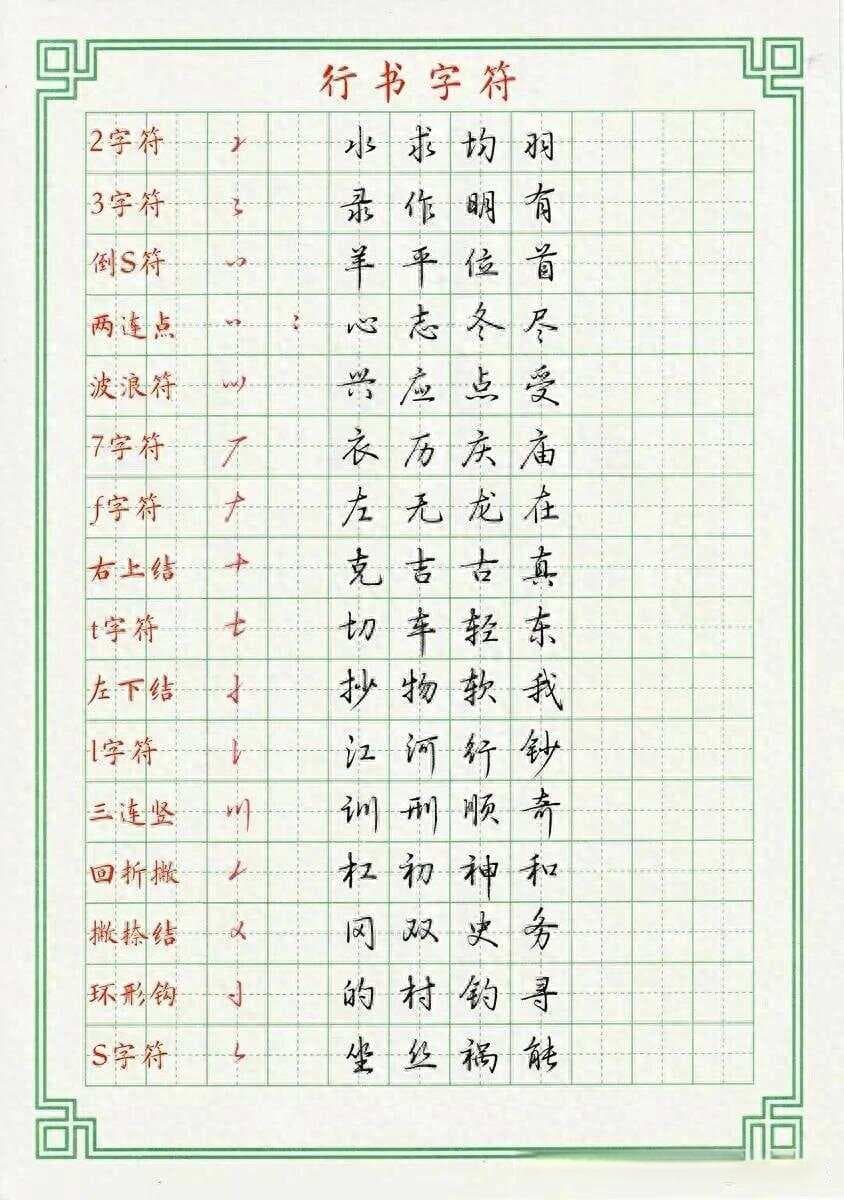 行书字符
2字符 水求均羽
3字符 录作明有
倒S符 羊平位首
两连点 心志冬尽
波浪符 兴应点受
7字符 衣历庆庙
f字符 左无龙在
右上结 克吉古真
t字符 切车轻东
左下结 抄物软我
l字符 江河行钞
三连竖 训刑顺奇
回折撇 杠初神和
撇捺结 冈双史务
环形钩 的村钓寻
S字符 坐丝祸能